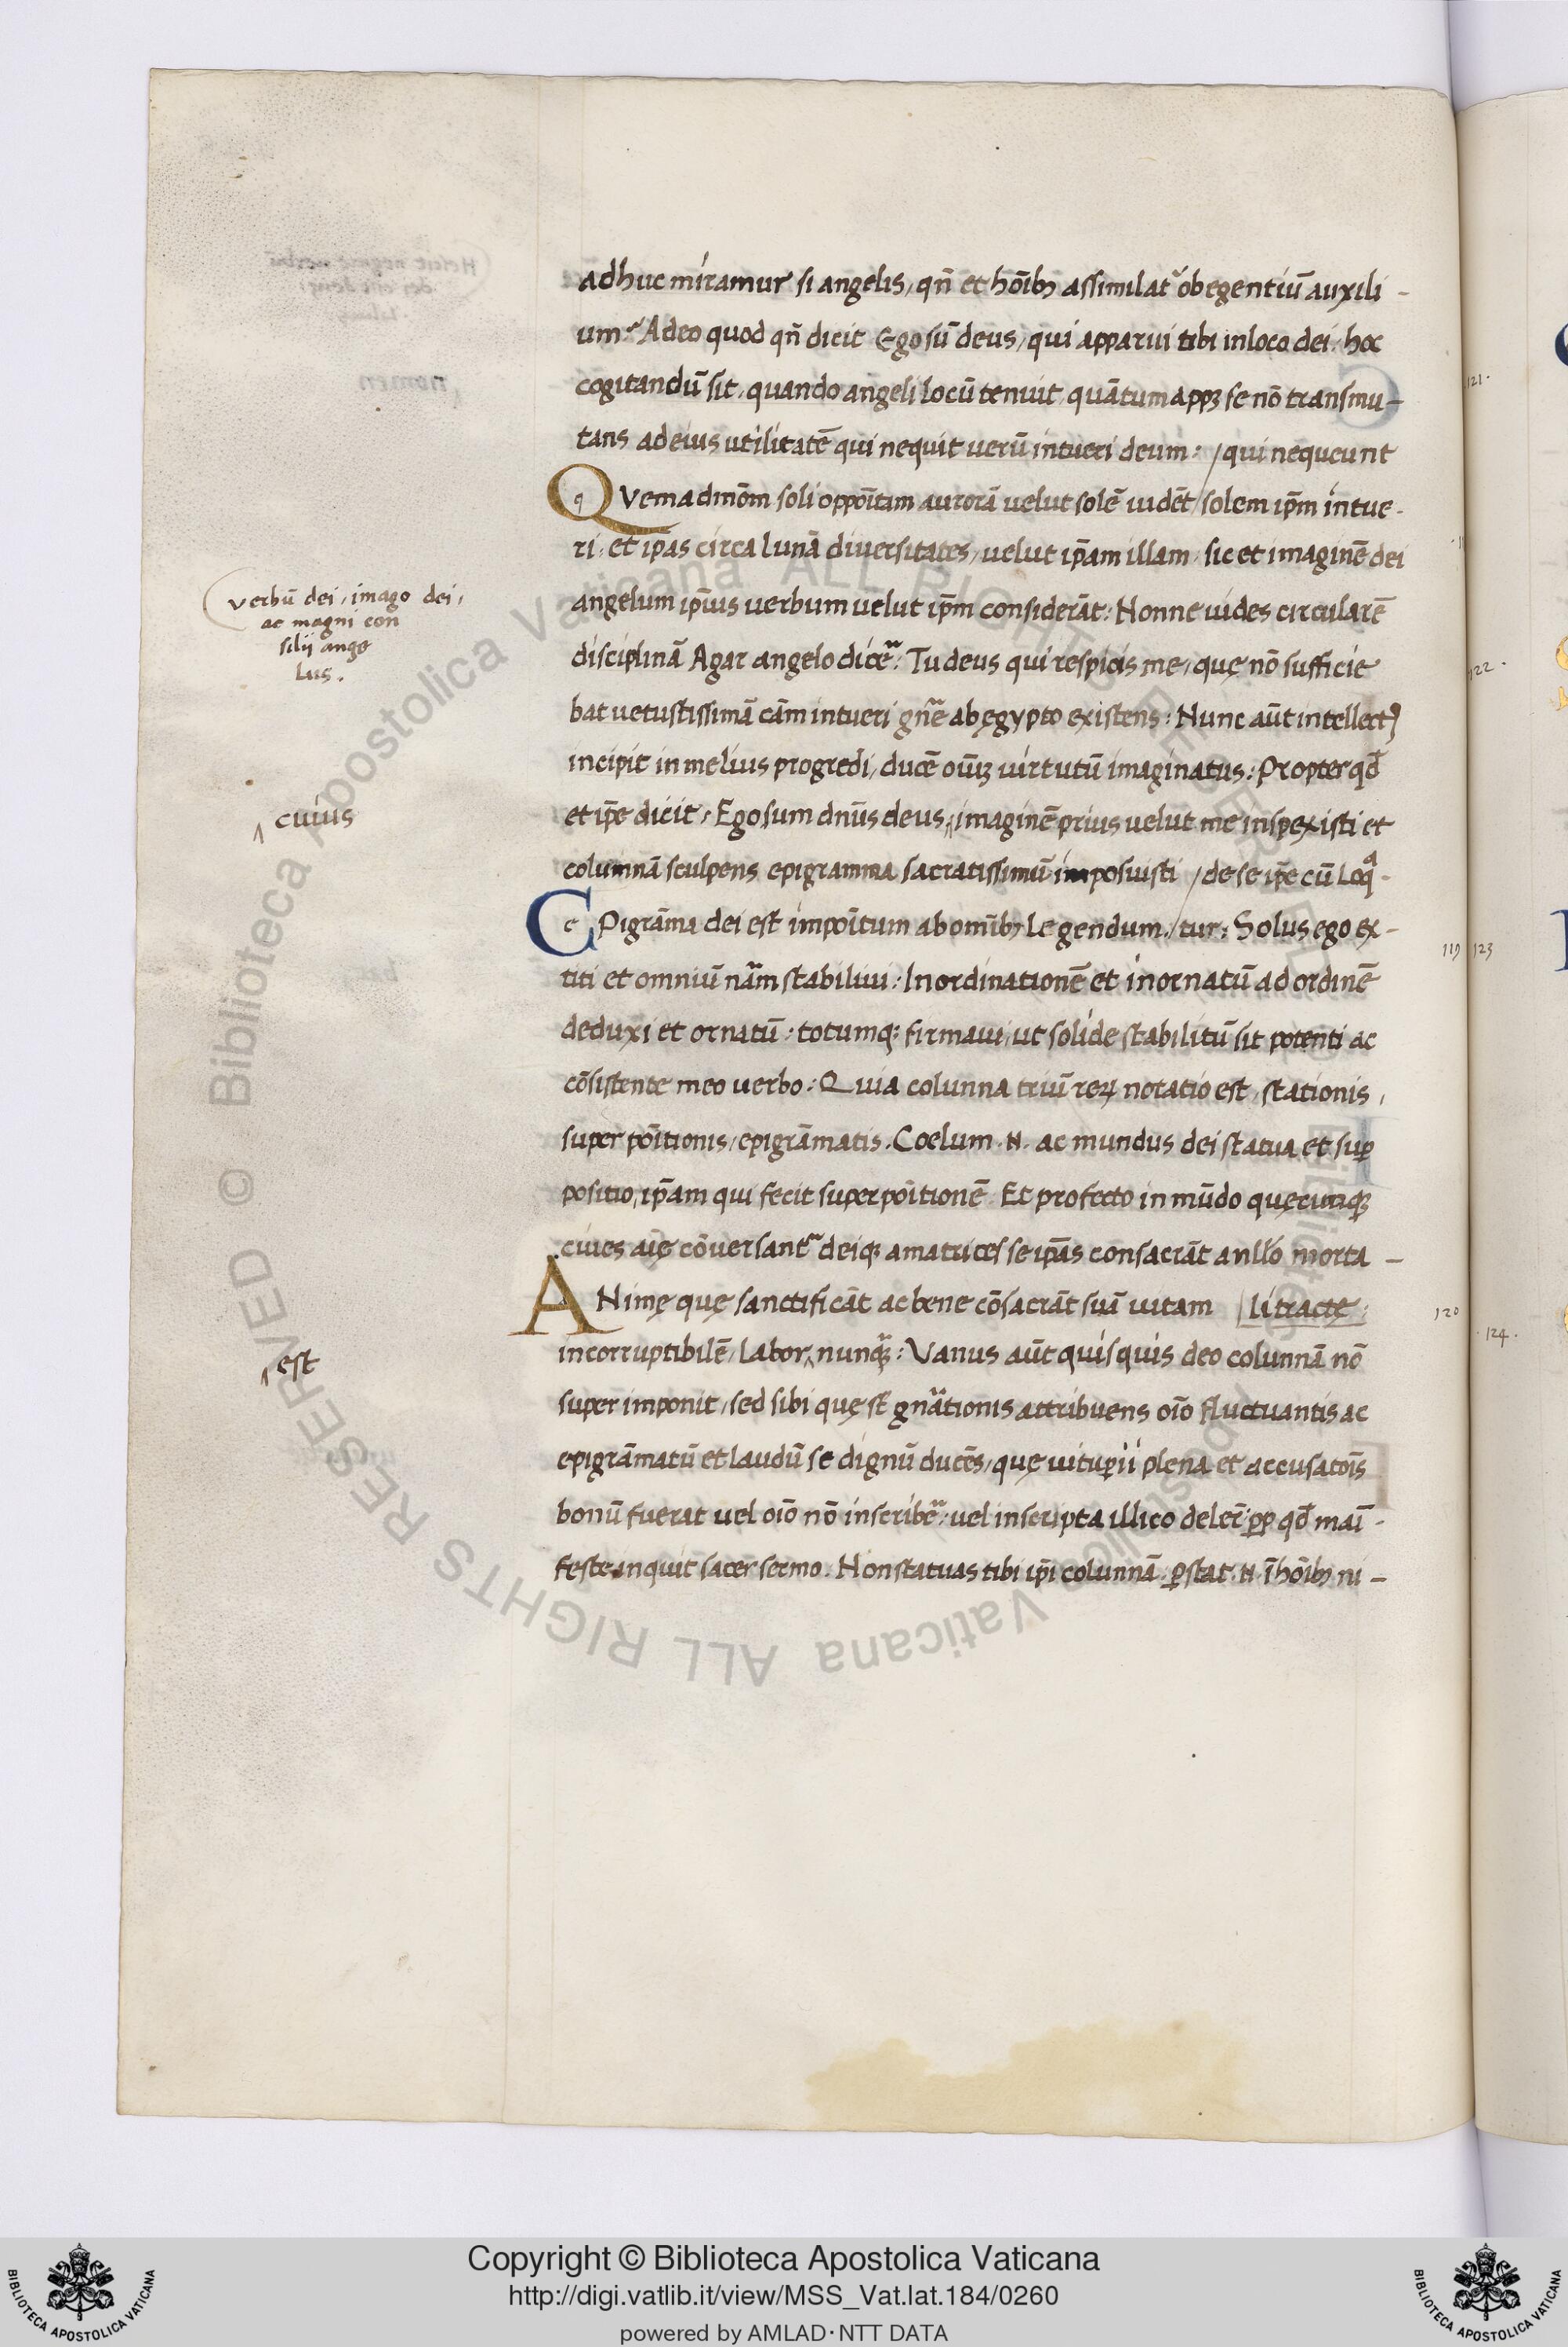 adhuc miramur si angelis, qñ et hōibꝫ assimilat᷑ ob egentiū auxili-
um? Adeo quod qñ dicit Ego sū deus, qui apparui tibi in loco dei, hoc
cogitandū sit, quando angeli locū tenuit, quātum appꝫ se nō transmu-
tans ad eius utilitatē qui nequit uerū intueri deum: / qui nequeunt
QVemadmōm soli oppōitam aurorā uelut solē uidēt / solem ip̄m intue-
ri, et ip̄as circa lunā diuersitates, uelut ip̄am illam, sic et imaginē dei
angelum ip̄ius uerbum uelut ip̄m considerāt: Nonne uides circularē
disciplinā Agar angelo dicē᷑: Tu deus qui respicis me, quę nō sufficie
bat uetustissimā cām intueri gn̄e ab ęgypto existens: Nunc aūt intellectꝰ
incipit in melius progredi, ducē oīuꝫ uirtutū imaginatus: Propter qđ
et ip̄e dicit, Ego sum dn̄us deus, imaginē prius uelut me inspexisti et
columnā sculpens epigramma sacratissimū imposuisti / de se ip̄e cū Loqͣ-
EPigrāma dei est impōitum ab omībꝫ Legendum. / tur: Solus ego ex-
titi et omniū nām stabiliui: Inordinationē et inornatū ad ordinē
deduxi et ornatū: totumqꝫ firmaui, ut solide stabilitū sit potenti ac
cōsistente meo uerbo: Quia colunna triū reꝝ notatio est, stationis,
superpōitionis, epigrāmatis. Coelum .N. ac mundus dei statua et suꝑ
positio, ip̄am qui fecit superpōitionē Et profecto in mūdo quęcunqꝫ
ciues aīę cōuersant᷑ deiqꝫ amatrices se ip̄as consacrāt a nłło morta-
ANimę quę sanctificāt ac bene cōsacrāt suā uitam / li tractę:
incorruptibilē, Labor, nunqᷓꝫ: Vanus aūt quisquis deo colunnā nō
superimponit, sed sibi quę st̄ gn̄ationis attribuens oīo fluctuantis ac
epigrāmatū et laudū se dignū ducēs, quę uituꝑii plena et accusatōis
bonū fuerat uel oīo nō inscribē᷑, uel inscripta illico delēr̄, ꝓp qđ maī-
feste inquit sacer sermo. Non statuas tibi ip̄i colunnā. ꝑstat .N. ī hōibꝫ ni-
verbū dei, imago dei,
ac magni con
silij ange
lus.
cuius
est
121.
122.
119
123
120
124.
Copyright © Biblioteca Apostolica Vaticana
http://digi.vatlib.it/view/MSS_Vat.lat.184/0260
powered by AMLAD·NTT DATA
BIBLIOTECA APOSTOLICA VATICANA
BIBLIOTECA APOSTOLICA VATICANA